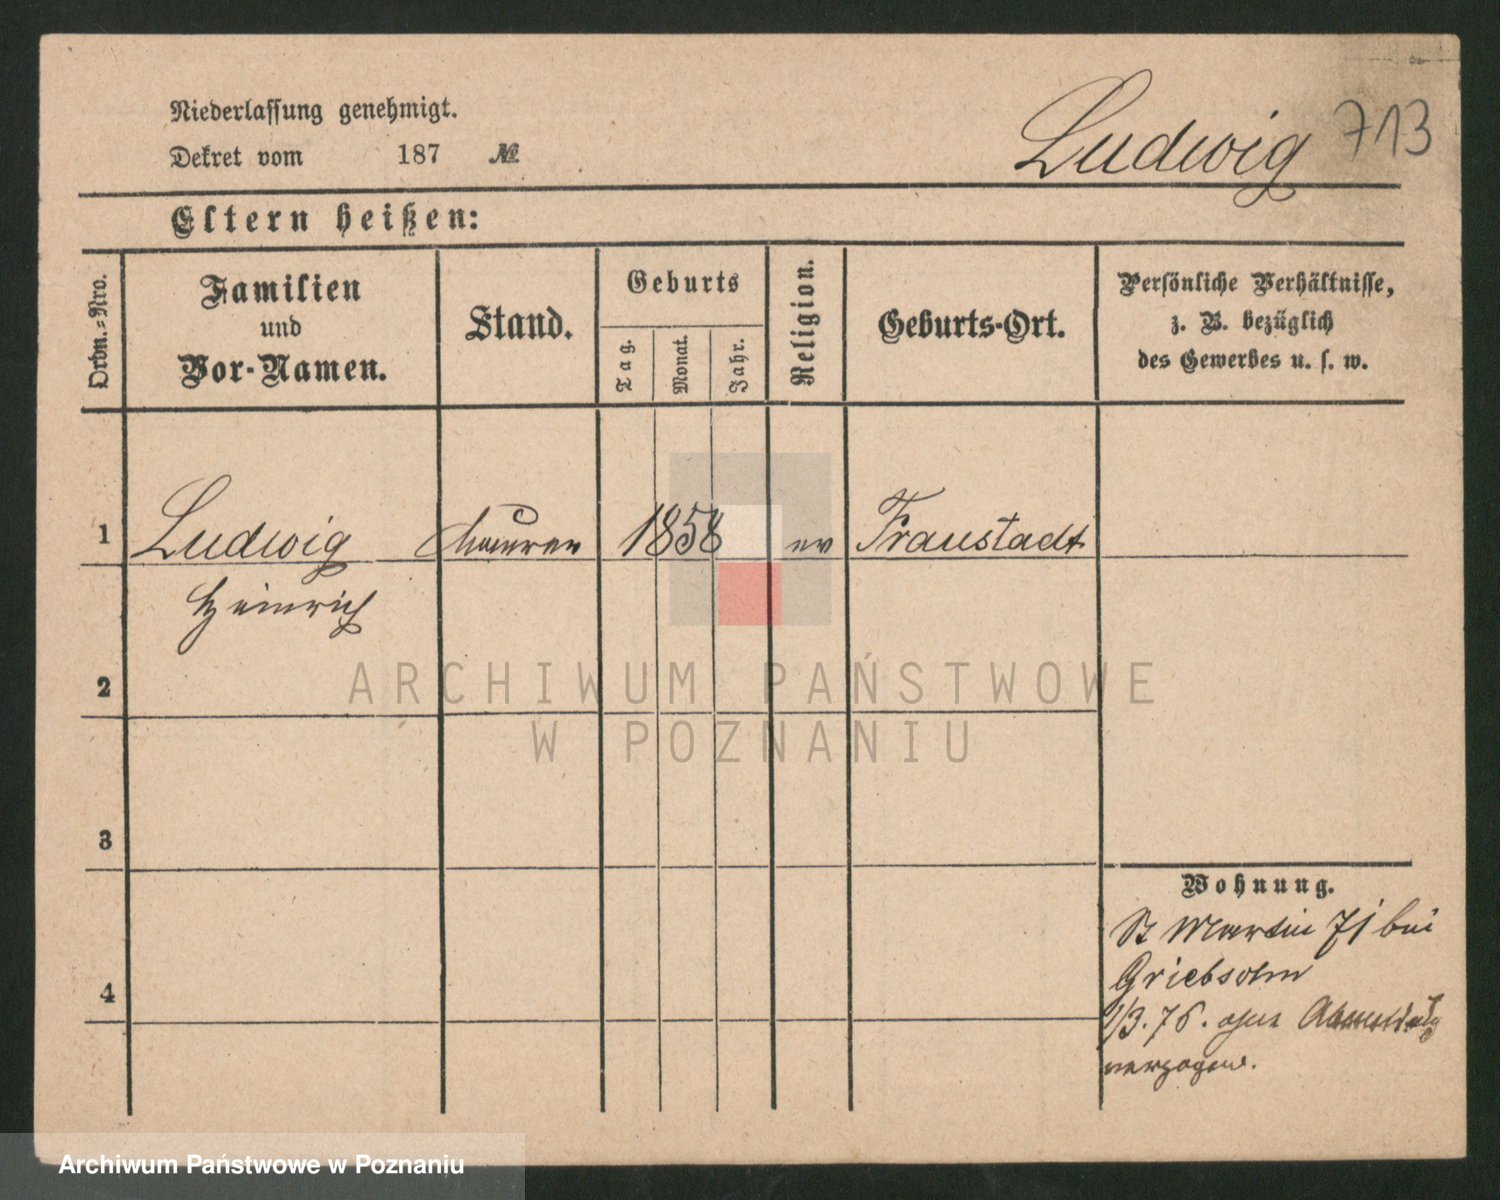 Niederlassung genehmigt.
Dekret vom 187 №
Ludwig 713
Eltern heißen:
Ordn.-Nro.
Familien und Vor-Namen.
Stand.
Geburts
Tag.
Monat.
Jahr.
Religion.
Geburts-Ort.
Persönliche Verhältnisse,
z. B. bezüglich
des Gewerbes u. s. w.
1 Ludwig Maurer 1858 ev Fraustadt
Heinrich
2
3
4
Wohnung.
St Martin 71 bei
1/3.76. ohne Abmeldung
verzogen.
ARCHIWUM PAŃSTWOWE
W POZNANIU
Archiwum Państwowe w Poznaniu